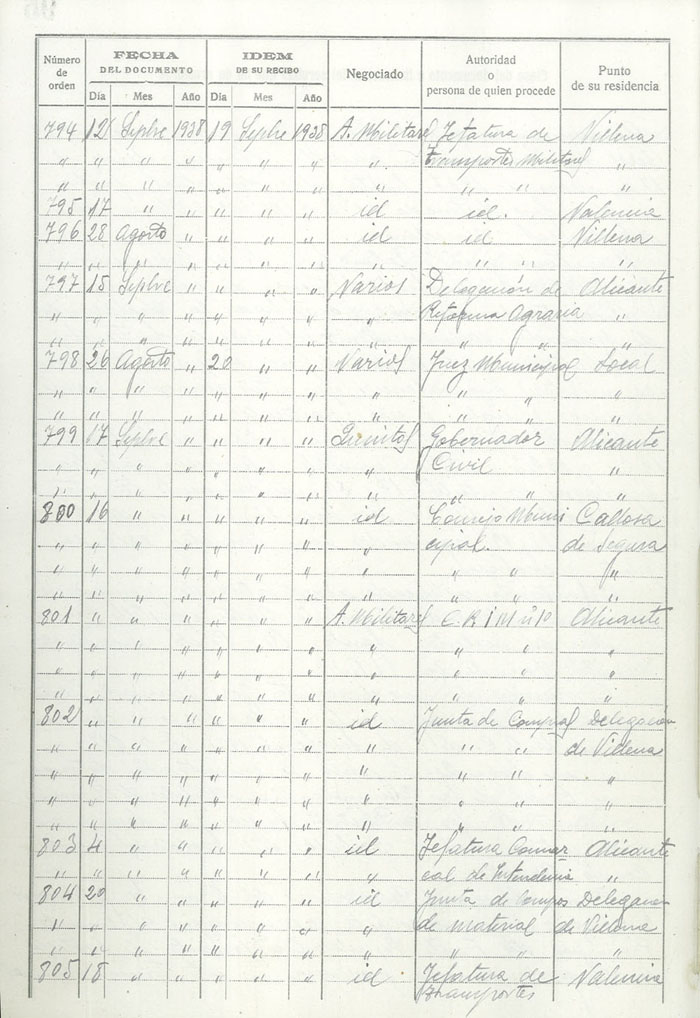 Número de orden | FECHA DEL DOCUMENTO | IDEM DE SU RECIBO | Negociado | Autoridad o persona de quien procede | Punto de su residencia
Día | Mes | Año | Día | Mes | Año
794 12 Sepbre 1938 19 Sepbre 1938 A. Militares Jefatura de Villena
" " " " " " " " Transportes Militares "
" " " " " " " " " " "
795 17 " " " " " id id. Valencia
796 28 Agosto " " " " id id Villena
" " " " " " " " " " "
797 15 Sepbre " " " " Varios Delegación de Alicante
" " " " " " " " Reforma Agraria "
" " " " " " " " " " "
798 26 Agosto " 20 " " Varios Juez Municipal Local
" " " " " " " " " " "
" " " " " " " " " " "
799 17 Sepbre " " " " Quintas Gobernador Alicante
" " " " " " " " Civil "
" " " " " " " " " " "
800 16 " " " " " id Consejo Muni Callosa
" " " " " " " " cipal. de Segura
" " " " " " " " " " "
" " " " " " " " " " "
801 " " " " " " A. Militares C. R. i M nº 10 Alicante
" " " " " " " " " " "
" " " " " " " " " " "
" " " " " " " " " " "
802 " " " " " " id Junta de Compras Delegación
" " " " " " " " " " de Villena
" " " " " " " " " " "
" " " " " " " " " " "
" " " " " " " " " " "
803 4 " " " " " id Jefatura Comar Alicante
" " " " " " " " cal de Intendencia "
804 20 " " " " " id Junta de Compras Delegacion
" " " " " " " " de material de Villena
" " " " " " " " " " "
805 18 " " " " " id Jefatura de Valencia
Transportes